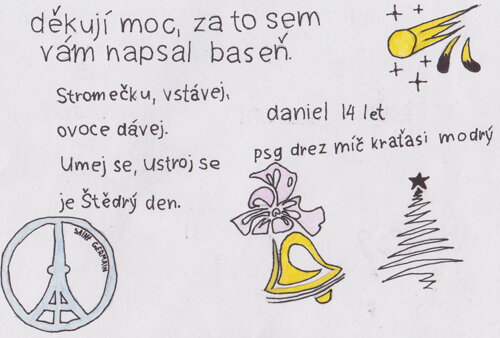 děkují moc, za to sem
vám napsal baseň.
Stromečku, vstávej,
ovoce dávej.
Umej se, ustroj se
je Štědrý den.
daniel 14 let
psg drez míč kraťasi modrý
SAINT GERMAIN